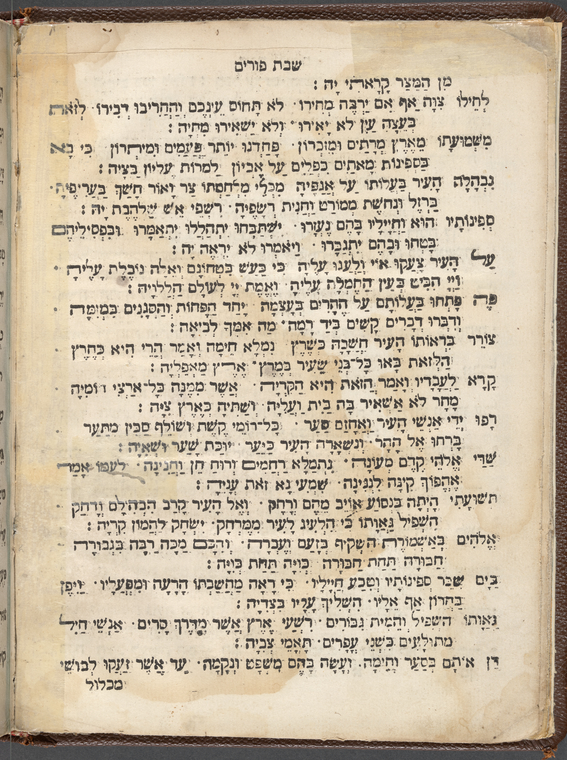 שבת פורים
מן המצר קראתי יה :
לחילו צוה אף אם ירבה מחירו · לא תחוס עינכם והחריבו דבירו · לזאת
בעצה עין לא יאירו · ולא ישאירו מחיה :
משמועתו מארץ מרתים ומזכרון · פחדנו יותר פעמים ומיתרון · כי בא
בספינות מאתים כפלים על אביון למרות עליון בציה :
נבהלה העיר בעלותו על אגפיה מכלי מלחמתו צר ואור חשך בעריפיה ·
ברזל ונחשת ממורט וחנית רשפיה · רשפי אש שלהבת יה :
ספינותיו הוא וחייליו בהם ננערו · ישתבחו יתהללו יתאמרו · ובפסיליהם
בטחו ובהם יתגברו · ויאמרו לא יראה יה :
על העיר צעקו אוי ולענו עליה כי כעש בטחונם ואלה נובלת עליה ·
ויי הביט בעין החמלת עליה · ואמת יי לעולם הללויה :
פה פתחו בעלותם על ההרים בעצמה · יחר הפחות והסגנים במזמה
ודברו דברים קשים ביד רמה · מה אמך לביאה :
צורר בראותו העיר חשכה כשרץ נמלא חימה ואמר הרי היא כחרץ
הלזאת באו כל בני שעיר במרץ · ארץ מאפליה :
קרא לעבדיו ואמר הזאת היא הקריה · אשר ממינה כל ארצי ודומיה
מחר לא אשאיר בה בית ועליה · ושתיה כארץ ציה :
רפו ידי אנשי העיר ואחזם סער · כל רומי קשת ושולף סכין מתער
ברחו אל ההר · ונשארה העיר כיער · יוכת שער ושאיה :
שדי אלהי קדם מעונה · נתמלא רחמים ורוח חן וחנינה · לעמו אמר
אהפוך קינה לנגינה · שמעי נא זאת עניה :
תשועתי היתה בנסוע אויב מהם ורחק · ואל העיר קרב הבהילם ודחק
השפיל גאותו כי הלעיג לעיר ממרחק · ישחק להמון קריה :
אלהים באשמורת השקיף בזעם ועברה · והכם מכה רבה בגבורה
חבורה תחת חבורה · כויה תחת כויה :
בים שבר ספינותיו וטבע חייליו · כי ראה מחשבתו הרעה ומפעליו · ויפן
בחרון אף אליו · השליך עליו בצדיה :
גאותו השפיל והמית גבורים · רשעי ארץ אשר מדרך סרים · אנשי חיל
מתולעים בשני עפרים · תאמי צביה :
דן אותם בסער וחימה · ועשה בהם משפט ונקמה · עד אשר זעקו לבושי
מכלול